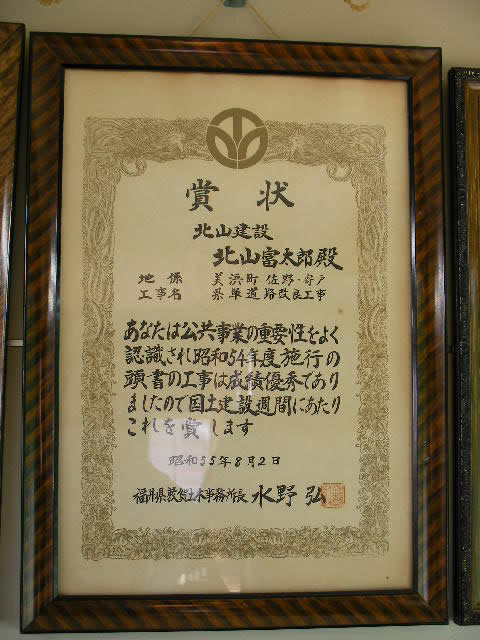 賞状
北山建設
北山富太郎殿
地係 美浜町 佐野・寄戸
工事名 県単道路改良工事
あなたは公共事業の重要性をよく
認識され昭和54年度施行の
頭書の工事は成績優秀であり
ましたので国土建設週間にあたり
これを賞します
昭和55年8月2日
福井県敦賀土木事務所長 水野弘